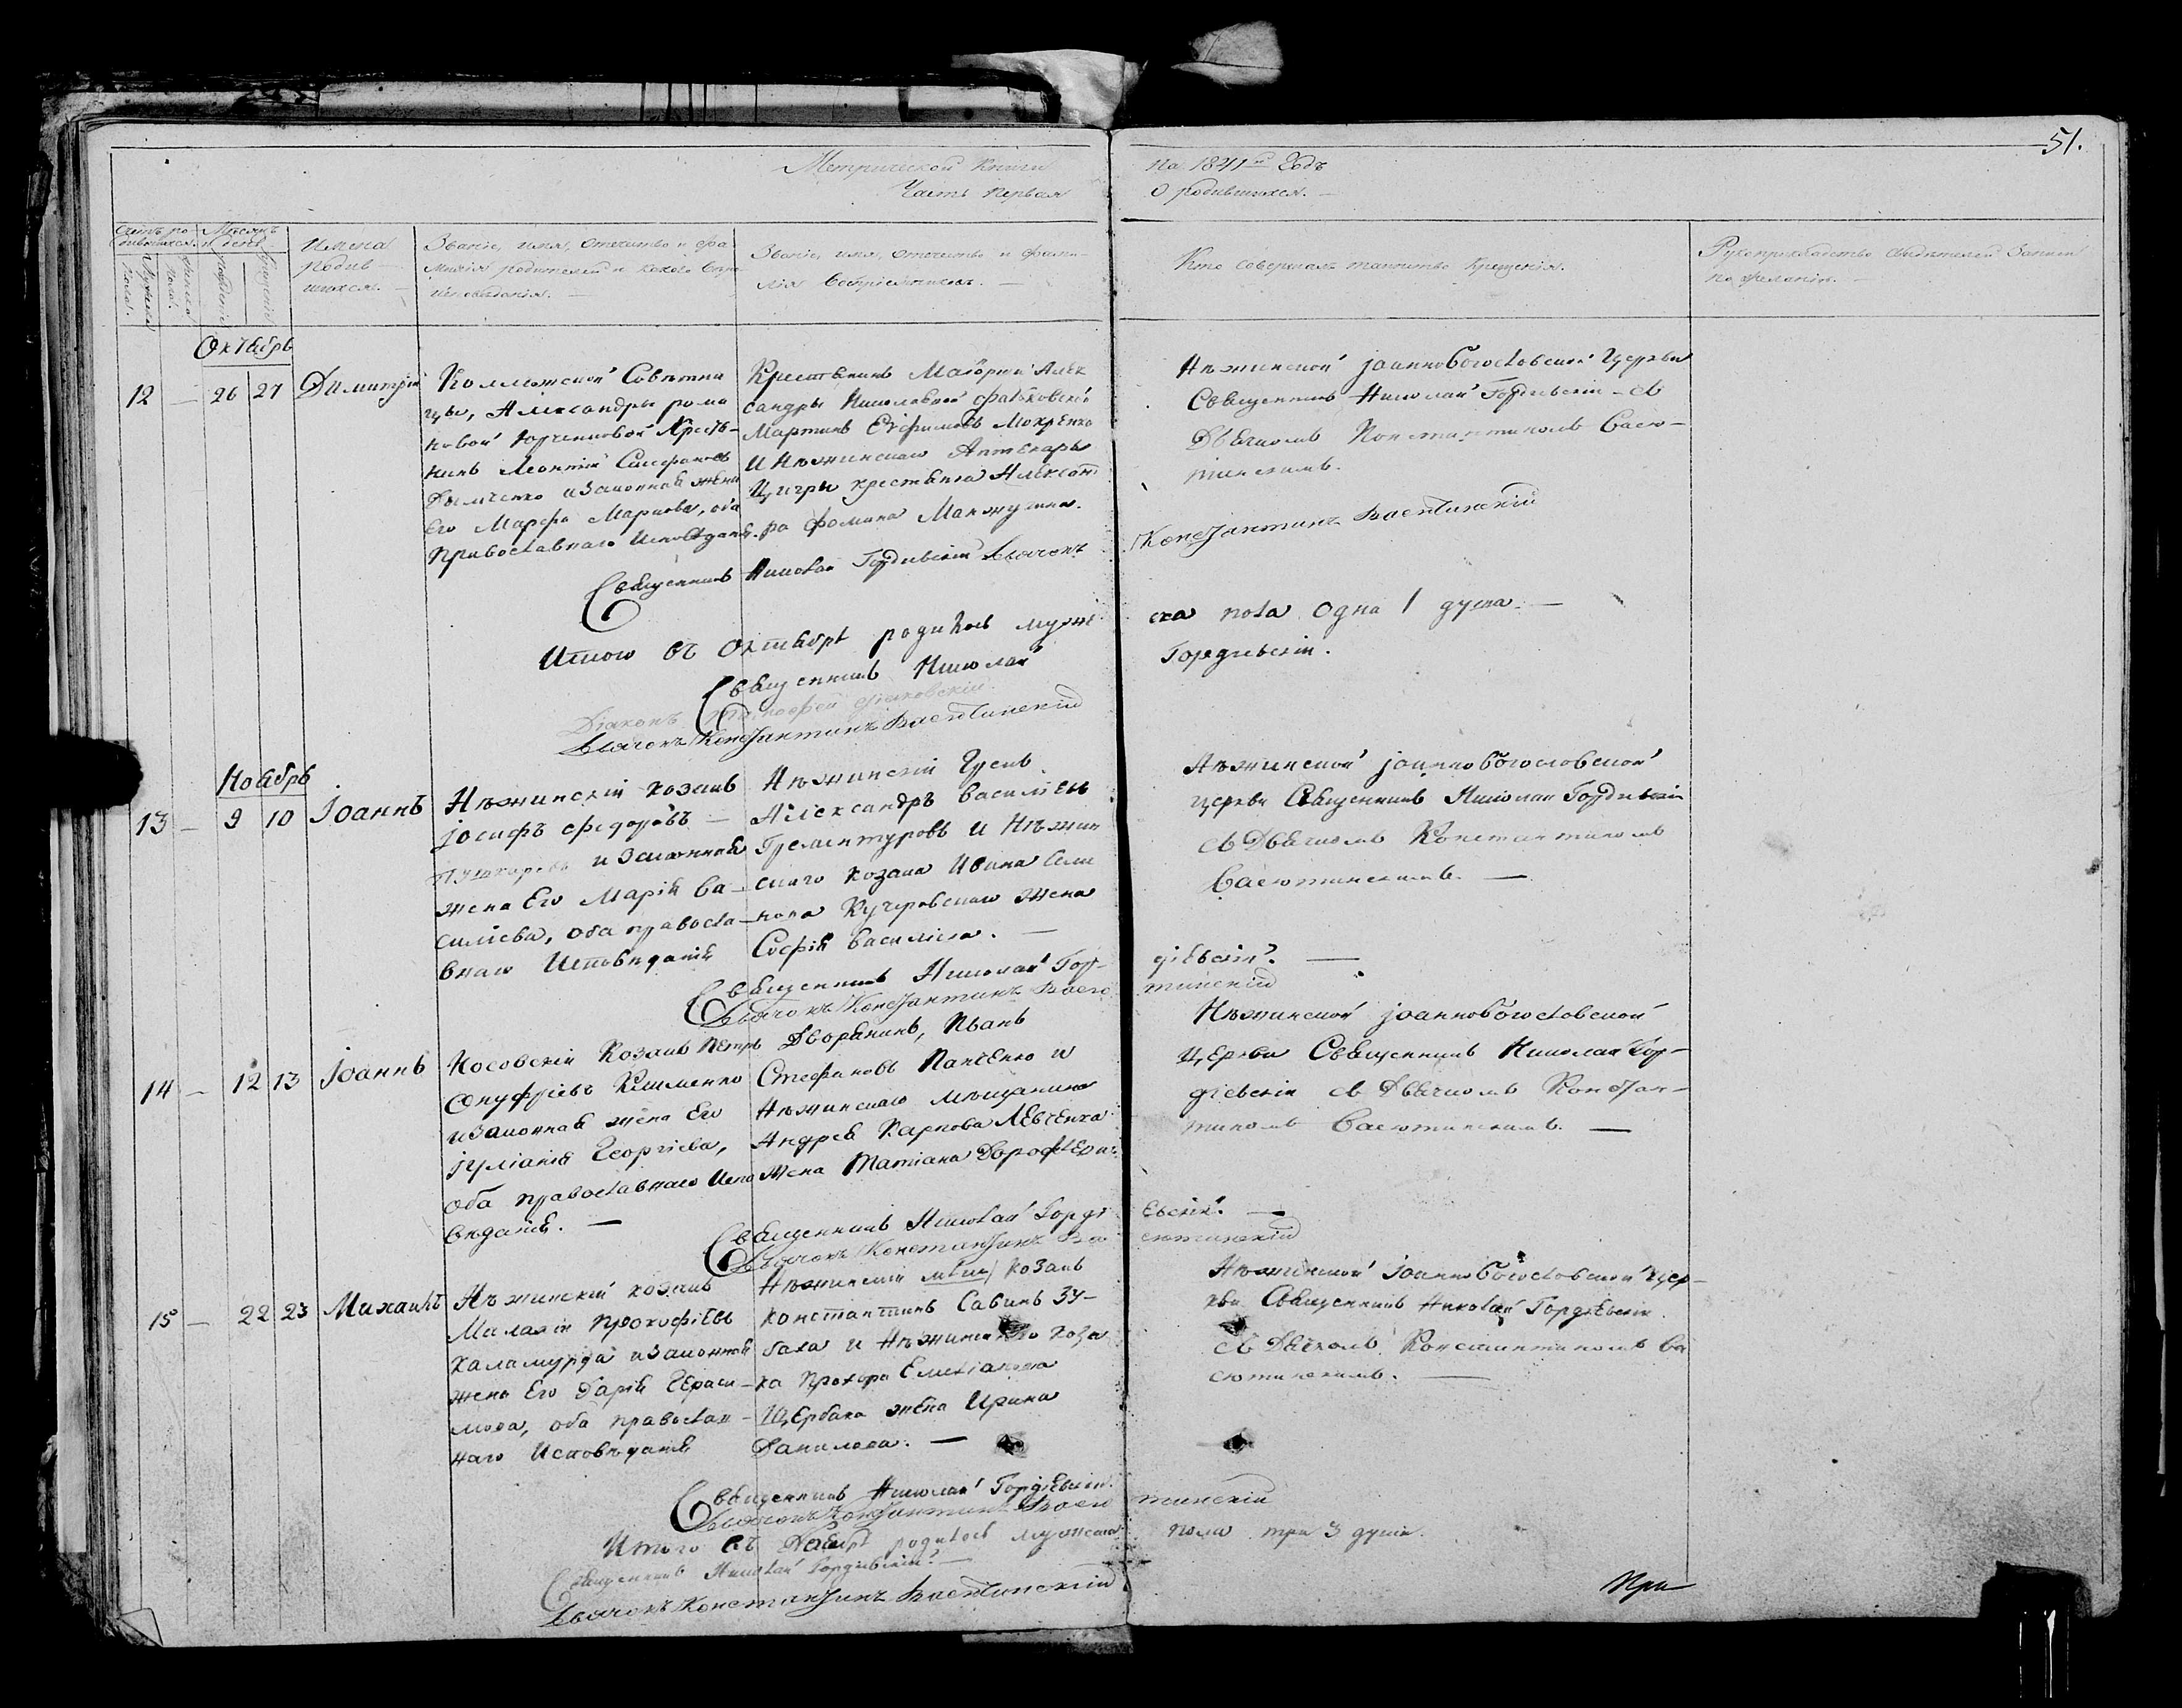 51.
Метрической книги
Часть первая
На 1841й Годъ
О родившихся. —
Счетъ ро-
дившихся.
Мѣсяцъ
и день
Мужеска
пола.
Женска
пола.
рожденія
крещенія
Имена
родив-
шихся. —
Званіе, имя, отчитство и фа
милія родителей и какого веро
исповѣданія. —
Званіе, имя, отчитство и фами-
лія воспріемниковъ. —
Кто совершалъ таинство крещенія.
Рукоприкладство свидѣтелей записи
по желанію. —
Октябрь
12 — 26 27 Димитрій
Коллежской Совѣтни
цы, Александры рома
новой Юрченковой Крестя-
нинъ Леонтій Стефановъ
Дымченко и законная жена
Его Марфа Маркова, оба
Православнаго Исповѣданія.
Крестянинъ Маіорши Алек
сандры Николаевой
Мартинъ Евфимовъ Мокренко
и Нѣжинскаго Аптекаря
Цигры крестянка Александ
ра Фомина Манжугина.
Нѣжинской Іоанно Богословской Церкви
Священникъ Николай Гордіевскій съ
Дьячкомъ Константиномъ Васю-
тинскимъ.
Священникъ Николай Гордіевскій Дьячокъ
Константинъ Васютинскій
Итого въ Октябрѣ родилось муже
ска пола одна 1 душа. —
Священникъ Николай
Гордіевскій.
Діаконъ
Дьячокъ Константинъ Васютинскій
Ноябрь
13 — 9 10 Іоаннъ
Нѣжинскій козакъ
Іосифъ Федоровъ —
Пушкаревъ и законная
жена Его Марія Ва-
силіева, оба правосла-
внаго Исповѣданія
Нѣжинскій Грекъ
Александръ Василіевъ
и Нѣжин
скаго козака Ивана Семе
нова Кучеровскаго жена
Софія Василіева. —
Нѣжинской Іоанно Богословской
церкви Священникъ Николай Гордіевскій
съ Дьячкомъ Константиномъ
Васютинскимъ. —
Священникъ Николай Гор-
діевскій. —
Дьячокъ Константинъ Васю
тинскій
14 — 12 13 Іоаннъ
Носовскій Козакъ Петръ
Онуфріевъ Клименко
и законная жена Его
Іуліанія Георгіева,
оба православнаго Испо
вѣданія. —
Дворянинъ, Иванъ
Стефановъ Панченко и
Нѣжинскаго мѣщанина
Андрея Карпова Левченка
жена Татіана Дорофѣева.
Нѣжинской Іоанно Богословской
Церкви Священникъ Николай Гор-
діевскій съ Дьячкомъ Констан-
тиномъ Васютинскимъ. —
Священникъ Николай Горді
евскій. —
Дьячокъ Константинъ Ва
сютинскій
15 — 22 23 Михаилъ
Нѣжинскій козакъ
Малахія Прокофіевъ
Каламурда и законная
жена Его Дарія Гераси-
мова, оба православ-
наго Исповѣданія
Нѣжинскій козакъ
Константинъ Савинъ Зу-
баха и Нѣжинскаго коза
ка Прохора Емеліанова
Щербака жена Ирина
Данилова. —
Нѣжинской Іоанно Богословской цер-
кви Священникъ Николай Гордіевскій
съ Дьячкомъ Константиномъ Ва
сютинскимъ. —
Священникъ Николай Гордіевскій.
Дьячокъ Константинъ Васю
тинскій
Итого въ Ноябрѣ родилось мужеска
пола три 3 души.
Священникъ Николай Гордіевскій. —
Дьячокъ Константинъ Васютинскій
При